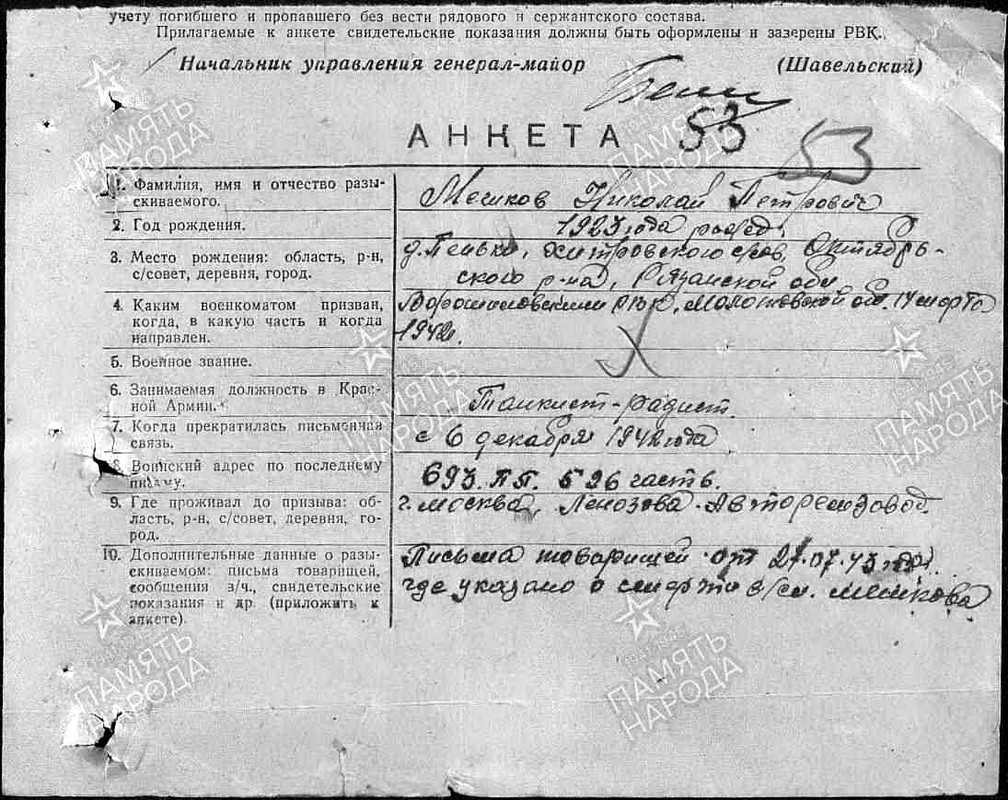 учету погибшего и пропавшего без вести рядового и сержантского состава.
Прилагаемые к анкете свидетельские показания должны быть оформлены и заверены РВК.
Начальник управления генерал-майор (Шавельский)
АНКЕТА 53 53
1. Фамилия, имя и отчество разы-
скиваемого.
Мешков Николай Петрович
2. Год рождения.
1923 года рожд.
3. Место рождения: область, р-н,
с/совет, деревня, город.
д. Пенько, Хитровского с/сов, Октябрь-
ского р-на, Рязанской обл.
4. Каким военкоматом призван,
когда, в какую часть и когда
направлен.
Ворошиловским РВК, Молотовской об. 14 марта
1942г.
5. Военное звание.
6. Занимаемая должность в Крас-
ной Армии.
Танкист-радист.
7. Когда прекратилась письменная
связь.
с 6 декабря 1942 года
8. Воинский адрес по последнему
письму.
693. ПП. 526 часть.
9. Где проживал до призыва: об-
ласть, р-н, с/совет, деревня, го-
род.
г. Москва, Авторемзавод.
10. Дополнительные данные о разы-
скиваемом: письма товарищей,
сообщения з/ч., свидетельские
показания и др. (приложить к
анкете).
Письма товарищей от 27.07.43 года
где указано о смерти в/сл. Мешкова
ПАМЯТЬ НАРОДА
ПАМЯТЬ НАРОДА
ПАМЯТЬ НАРОДА
ПАМЯТЬ НАРОДА
ПАМЯТЬ НАРОДА
ПАМЯТЬ НАРОДА